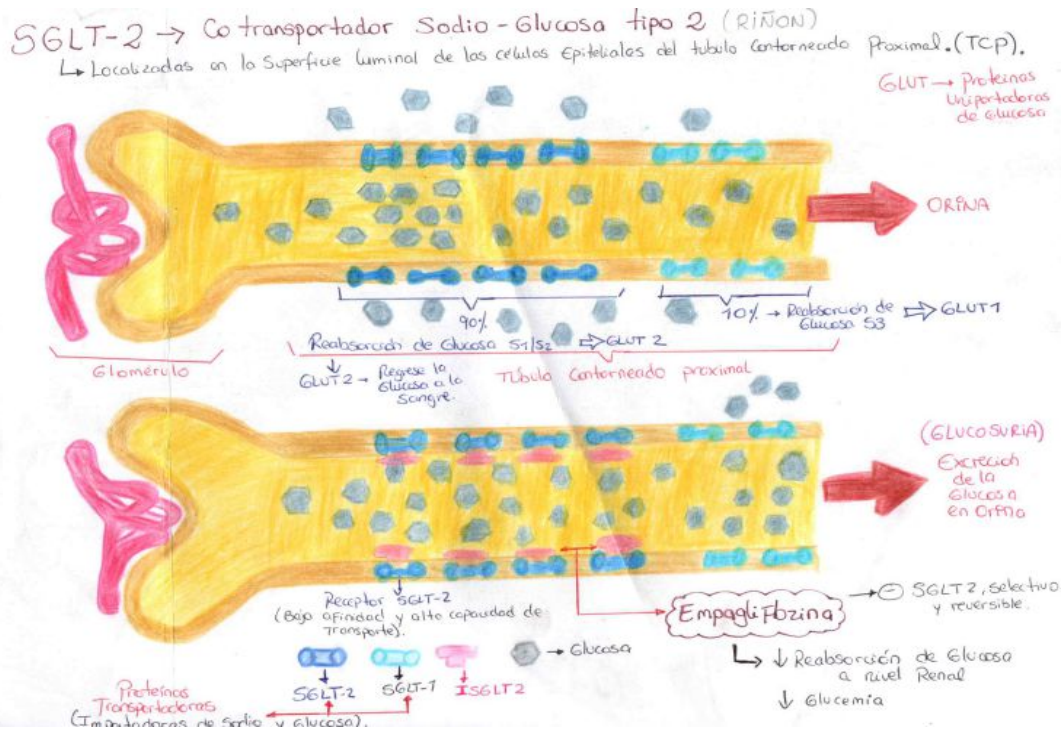 SGLT-2 → Cotransportador Sodio-Glucosa tipo 2 (RIÑON)
↳ Localizadas en la Superficie luminal de las células Epiteliales del tubulo Contorneado Proximal. (TCP).
GLUT → Proteinas
Uniportadoras
de Glucosa
ORINA
90%
10% → Reabsorción de
Glucosa S3
⇨ GLUT1
Reabsorción de Glucosa S1/S2 ⇨ GLUT 2
GLUT2 → Regrese la
Glucosa a la
Sangre.
Glomérulo
Túbulo Contorneado proximal
(GLUCOSURIA)
Excreción
de la
Glucosa
en Orina
Receptor SGLT-2
(Bajo afinidad y alto capacidad de
Transporte).
Empagliflozina
→ ⊖ SGLT2, selectivo
y reversible.
↳ ↓ Reabsorción de Glucosa
a nivel Renal
↓ Glucemia
→ Glucosa
SGLT-2
SGLT-1
ISGLT2
Proteínas
Transportadoras
(Importadoras de Sodio y Glucosa).